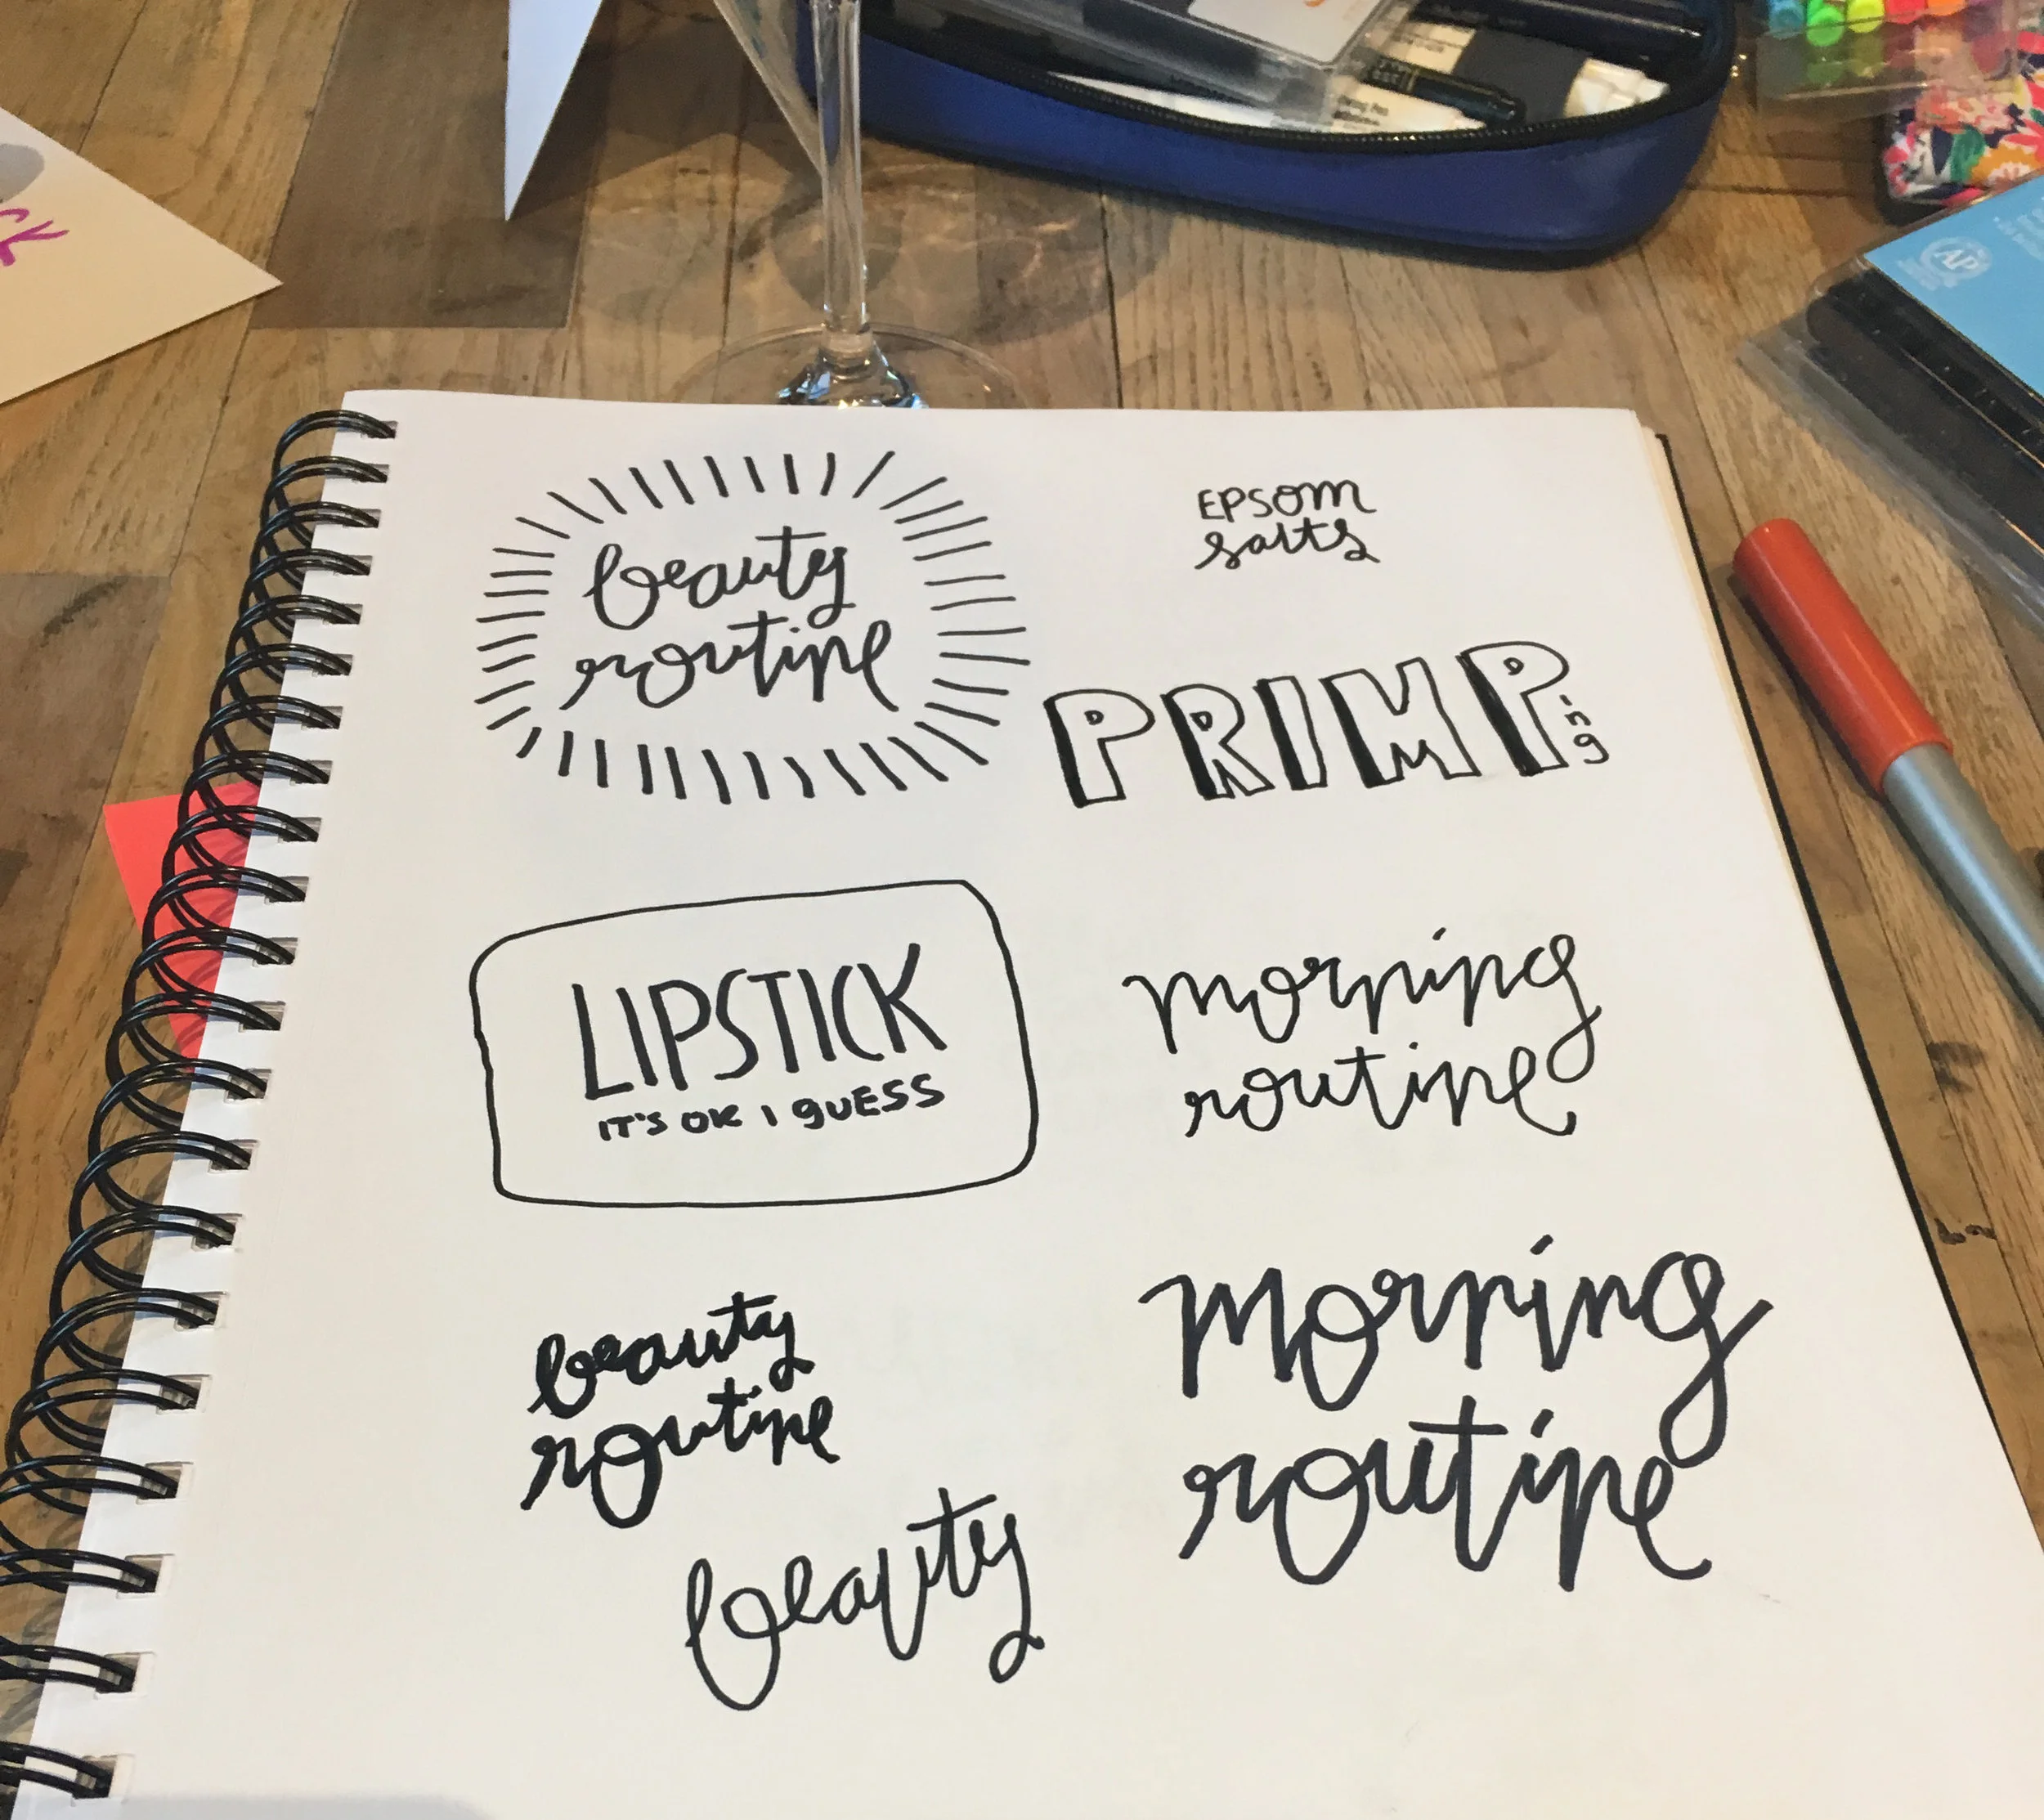 beauty
routine
EPSOM
salts
PRIMPing
LIPSTICK
IT'S OK I gUESS
morning
routine
beauty
routine
morning
routine
beauty
CK
AP